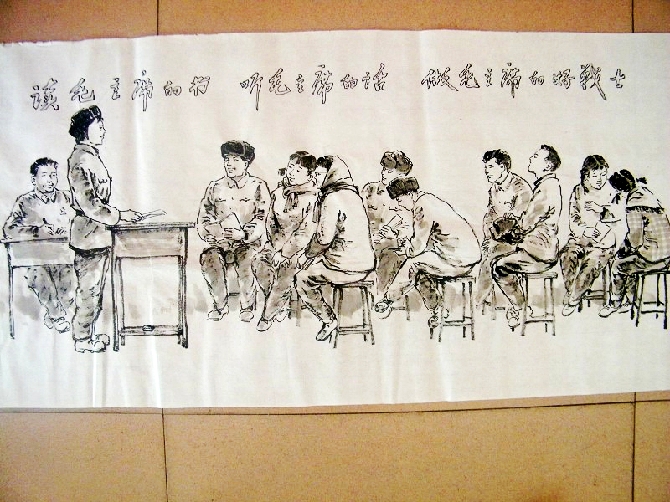 读毛主席的书 听毛主席的话 做毛主席的好战士